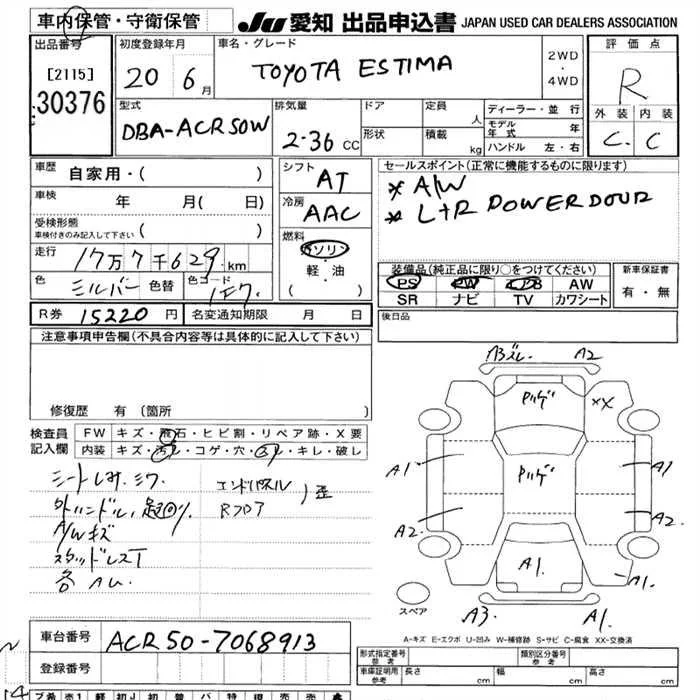 車内保管・守衛保管
JU 愛知 出品申込書 JAPAN USED CAR DEALERS ASSOCIATION
出品番号
[2115]
30376
初度登録年月
20 6月
車名・グレード
TOYOTA ESTIMA
2WD
・
4WD
評価点
R
外装 内装
C. C
型式
DBA-ACR50W
排気量
2-36 CC
ドア
形状
定員 人
積載 kg
ディーラー・並行
モデル年式 年
ハンドル 左・右
車歴 自家用・( )
車検 年 月( 日)
受検形態
車検付きのみ記入して下さい ( )
走行 17万7千629 km
色 シルバー 色替 色コード 1F7.
シフト AT
冷房 AAC
燃料
ガソリン
軽・油
( )
セールスポイント(正常に機能するものに限ります)
* A/W
* L+R POWER DOUR
装備品(純正品に限り○をつけてください)
PS PW AW
SR ナビ TV カワシート
新車保証書
有・無
R券 15220 円 名変通知期限 月 日
後日品
注意事項申告欄(不具合内容等は具体的に記入して下さい)
修復歴 有(箇所 )
検査員記入欄
FW キズ・飛石・ヒビ割・リペア跡・X要
内装 キズ・汚レ・コゲ・穴・スレ・キレ・破レ
シートしみ.シワ
A/Wキズ
スタッドレスT
エンドパネル
Rフロア
歪
A2
XX
A1
A1
A2.
A2.
A1.
A1.
A3.
A1.
スペア
A-キズ E-エクボ U-凹み W-補修跡 S-サビ C-腐食 XX-交換済
車台番号 ACR50-7068913
登録番号
形式指定番号 参考
類別区分番号 参考
車庫証明用 参考 長さ cm 幅 cm 高さ cm